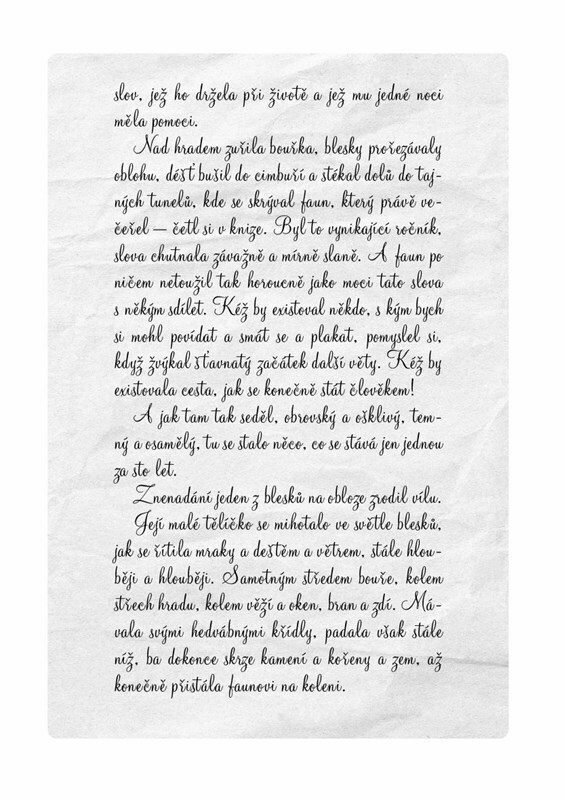 slov, jež ho držela při životě a jež mu jedné noci
měla pomoci.
Nad hradem zuřila bouřka, blesky prořezávaly
oblohu, déšť bušil do cimbuří a stékal dolů do taj-
ných tunelů, kde se skrýval faun, který právě ve-
čeřel — četl si v knize. Byl to vynikající ročník,
slova chutnala závažně a mírně slaně. A faun po
ničem netoužil tak horoucně jako moci tato slova
s někým sdílet. Kéž by existoval někdo, s kým bych
si mohl povídat a smát se a plakat, pomyslel si,
když žvýkal šťavnatý začátek další věty. Kéž by
existovala cesta, jak se konečně stát člověkem!
A jak tam tak seděl, obrovský a ošklivý, tem-
ný a osamělý, tu se stalo něco, co se stává jen jednou
za sto let.
Znenadání jeden z blesků na obloze zrodil vílu.
Její malé tělíčko se mihotalo ve světle blesků,
jak se řítila mraky a deštěm a větrem, stále hlou-
běji a hlouběji. Samotným středem bouře, kolem
střech hradu, kolem věží a oken, bran a zdí. Má-
vala svými hedvábnými křídly, padala však stále
níž, ba dokonce skrze kamení a kořeny a zem, až
konečně přistála faunovi na koleni.